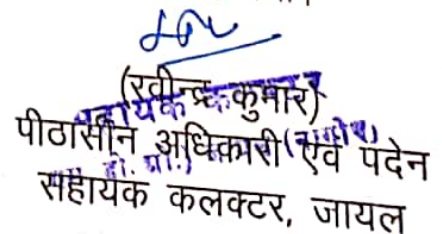 (रवीन्द्र कुमार)
पीठासीन अधिकारी एवं पदेन
सहायक कलक्टर, जायल